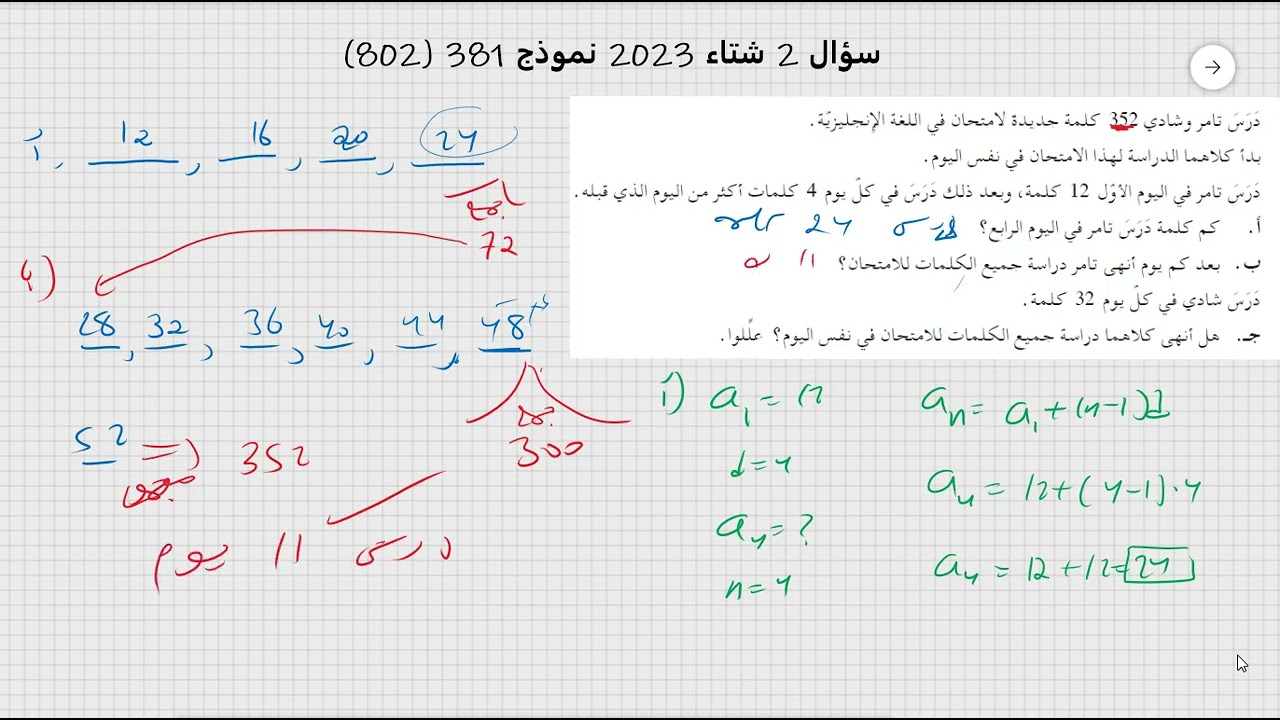 سؤال 2 شتاء 2023 نموذج 381 (802)
دَرَسَ تامر وشادي 352 كلمة جديدة لامتحان في اللغة الإنجليزيّة.
بدأ كلاهما الدراسة لهذا الامتحان في نفس اليوم.
دَرَسَ تامر في اليوم الأوّل 12 كلمة، وبعد ذلك دَرَسَ في كلّ يوم 4 كلمات أكثر من اليوم الذي قبله.
أ. كم كلمة دَرَسَ تامر في اليوم الرابع؟ درس 24
ب. بعد كم يوم أنهى تامر دراسة جميع الكلمات للامتحان؟ 11
دَرَسَ شادي في كلّ يوم 32 كلمة.
جـ. هل أنهى كلاهما دراسة جميع الكلمات للامتحان في نفس اليوم؟ علِّلوا.
أ. 12, 16, 20, 24
72
28, 32, 36, 40, 44, 48
300
52 => 352
درس 11 يوم
أ) a₁ = 12
d = 4
a₄ = ?
n = 4
aₙ = a₁ + (n-1)d
a₄ = 12 + (4-1)·4
a₄ = 12 + 12 = 24